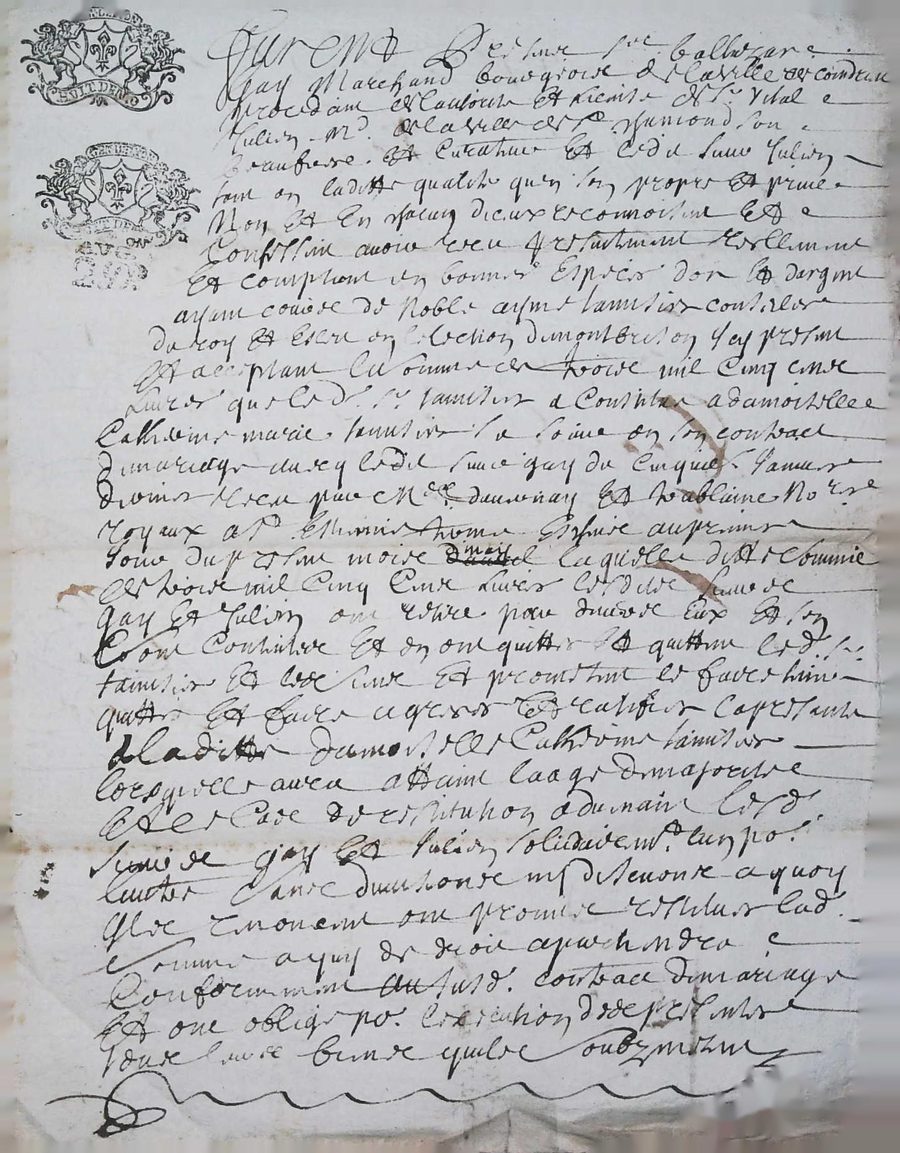 SUIT DENO
Furent Presens sr. balthezare
Gay Marchand bourgeois de la ville de condrieu
procedam de lautorite et licence de sr. Vital
Jullien md. de la ville de st. chamond son
beaufrere et curateur et ledit sieur Jullien
tant en laditte qualite quen son propre et prive
Non et en chacun dieux reconnoissent et
Confessent avoir receu presentement reellement
et comptant en bonnes Especes dor et dargent
ayant cource de Noble ayme tamitier conseiller
du roy et Esleu en lelection de montbrison icy present
Et acceptant la somme de troies mil cinq cens
Livres que led. sr. tamitier a constitue a damoiselle
Catherine marie tamitier sa soeur en son contract
de mariage avecq ledit sieur gay du cinquie. Janvier
dernier receu par Mes. dauvenay et tablaine Nores
royaux a st. Ethienne
Jour du presens moies may laquelle ditte somme
de troies mil cinq cens livres lesdits sieurs
gay et Jullien ont retire pour devers eux et sen
sont contentes et en ont quitte et quittent led. sr.
tamitier et les siens et promettent le faire tenir
quitte et faire agreer et ratifier la presente
a laditte damoiselle Catherine tamitier
lorsquelle aura attaint laage de majorite
Et le cas de restitution advenant lesd.
sieurs gay et Jullien solidairemt. lun po.
lautre sans division ny discution a quoy
ont promis restituer lad.
somme a quy de droit apartiendra
Conformement au susd. contract de mariage
Et ont oblige po. lexecution des presentes
tous leurs biens quils soubzmettent